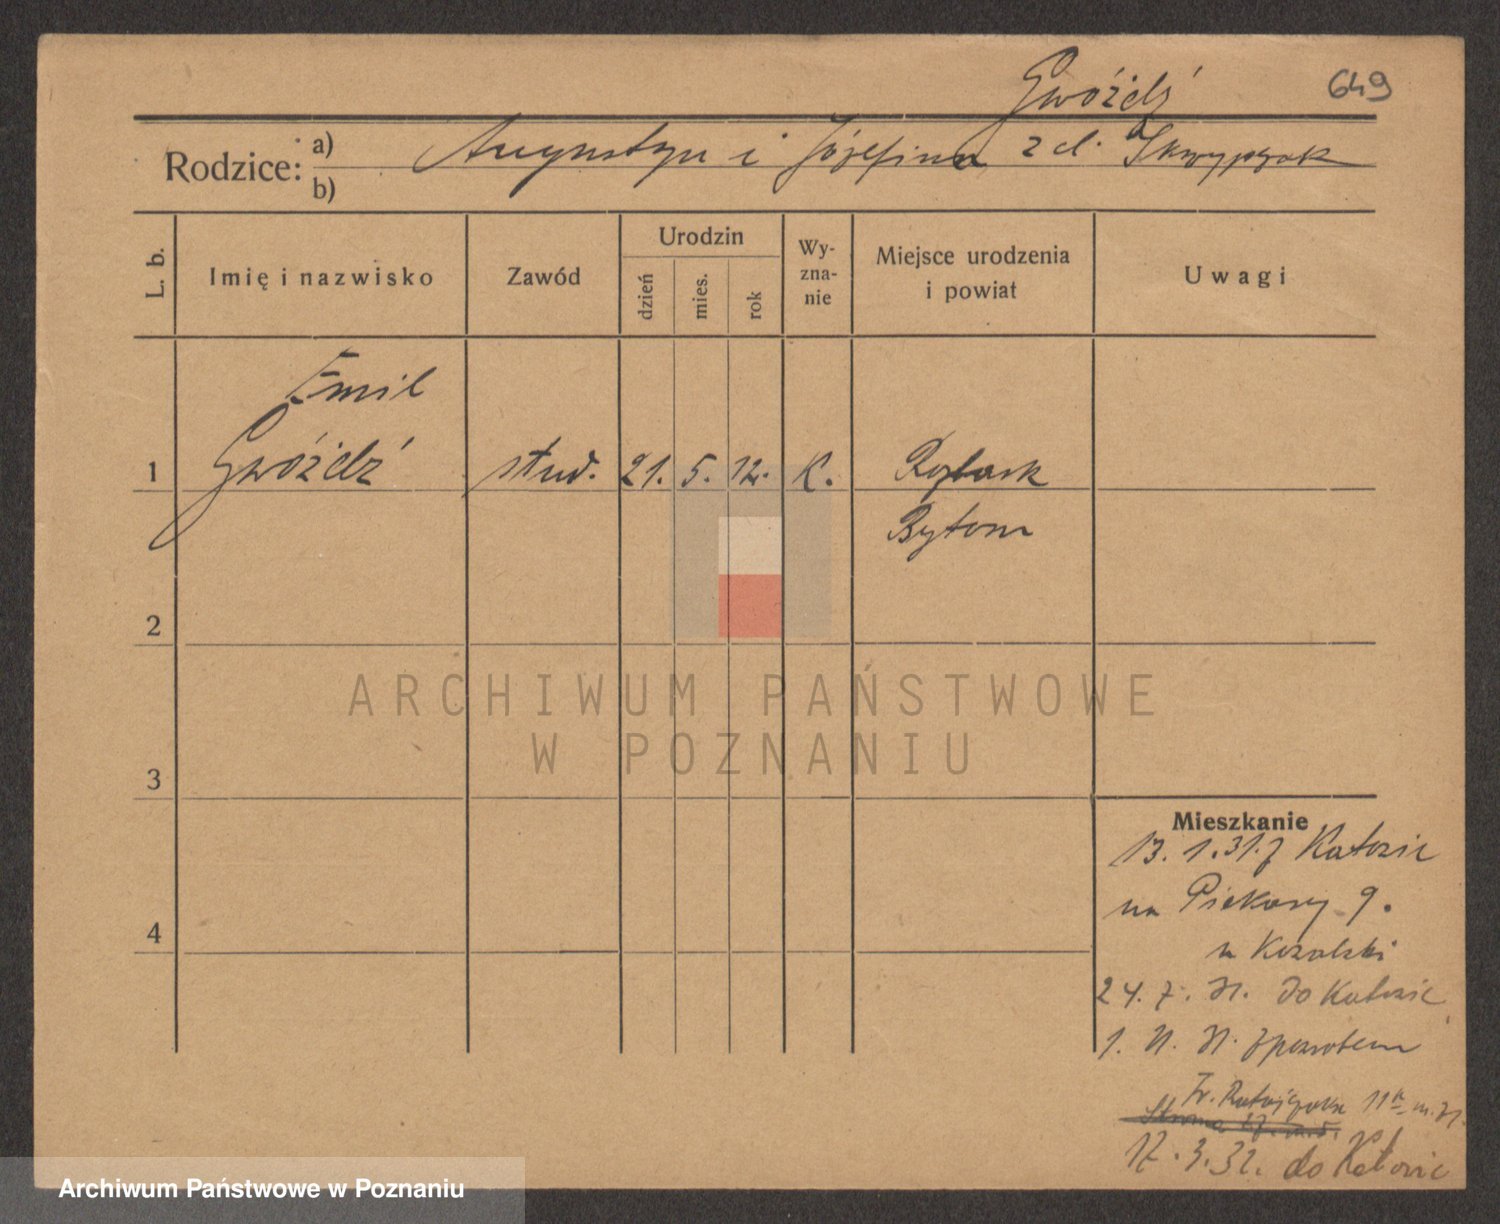 Gwóźdź 649
Rodzice: a) Augustyn i Józefina z d. Skrzypczok
b)
L. b. Imię i nazwisko Zawód Urodzin dzień mies. rok Wy-zna-nie Miejsce urodzenia i powiat Uwagi
Emil
1 Gwóźdź stud. 21. 5. 12. K.
Bytom
2
ARCHIWUM PAŃSTWOWE
W POZNANIU
3
Mieszkanie
13. 1. 31. z Katowic
na Piekary 9.
4
u Kozalski
24. 7. 31. do Katowic
1. 11. 31. zpowrotem
Fr. Ratajczaka 11a m.
17. 3. 32. do Katowic
Archiwum Państwowe w Poznaniu